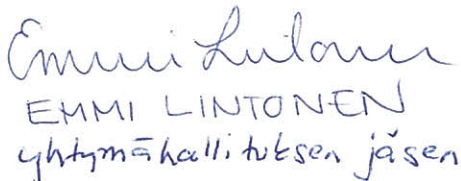 Emmi Lintonen
EMMI LINTONEN
yhtymähallituksen jäsen